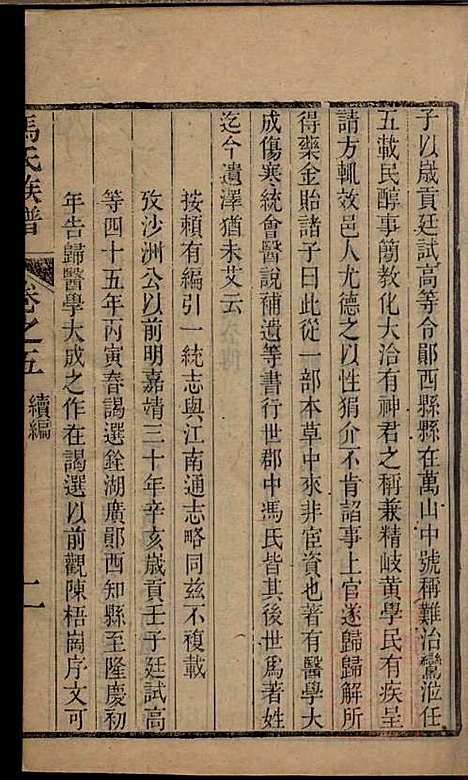 子以歳貢廷試高等令鄖西縣縣在萬山中號稱難治鸞涖任
五載民醇事簡教化大洽有神君之稱兼精岐黃學民有疾呈
請方輒效邑人尤德之以性狷介不肯諂事上官遂歸歸解所
得槖金貽諸子曰此從一部本草中來非宦資也著有醫學大
成傷寒統會醫說補遺等書行世郡中馮氏皆其後世爲著姓
迄今遺澤猶未艾云
按頼有編引一統志與江南通志略同茲不複載
攷沙洲公以前明嘉靖三十年辛亥歳貢壬子廷試高
等四十五年丙寅春謁選銓湖廣鄖西知縣至隆慶初
年告歸醫學大成之作在謁選以前觀陳梧崗序文可
馮氏族譜 卷之五 續編 二